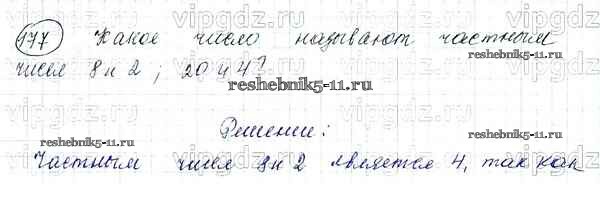 177 Какое число называют частным
чисел 8 и 2; 20 и 4?
Решение:
Частным чисел 8 и 2 является 4, так как
vipgdz.ru
reshebnik5-11.ru
reshebnik5-11.ru
reshebnik5-11.ru